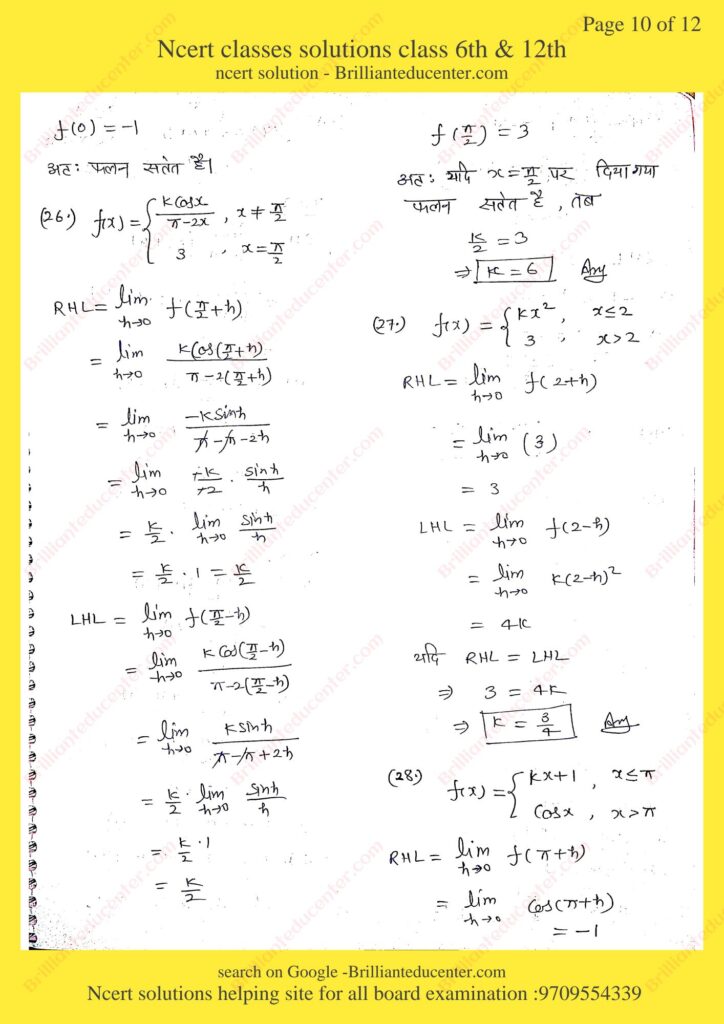 Page 10 of 12
Ncert classes solutions class 6th & 12th
ncert solution - Brillianteducenter.com
f(0) = -1
अतः फलन सतत है।
(26.) f(x) = { k Cosx / π-2x , x ≠ π/2
3 , x = π/2
RHL = lim h→0 f(π/2+h)
= lim h→0 k Cos(π/2+h) / π-2(π/2+h)
= lim h→0 -k sinh / π-π-2h
= lim h→0 -k/-2 · sinh/h
= k/2 · lim h→0 sinh/h
= k/2 · 1 = k/2
LHL = lim h→0 f(π/2-h)
= lim h→0 k Cos(π/2-h) / π-2(π/2-h)
= lim h→0 k sinh / π-π+2h
= k/2 · lim h→0 sinh/h
= k/2 · 1
= k/2
f(π/2) = 3
अतः यदि x = π/2 पर दिया गया
फलन सतत है, तब
k/2 = 3
⇒ k = 6 Ans
(27.) f(x) = { kx², x ≤ 2
3, x > 2
RHL = lim h→0 f(2+h)
= lim h→0 (3)
= 3
LHL = lim h→0 f(2-h)
= lim h→0 k(2-h)²
= 4k
यदि RHL = LHL
⇒ 3 = 4k
⇒ k = 3/4 Ans
(28.) f(x) = { kx+1, x ≤ π
Cosx, x > π
RHL = lim h→0 f(π+h)
= lim h→0 Cos(π+h)
= -1
search on Google -Brillianteducenter.com
Ncert solutions helping site for all board examination :9709554339